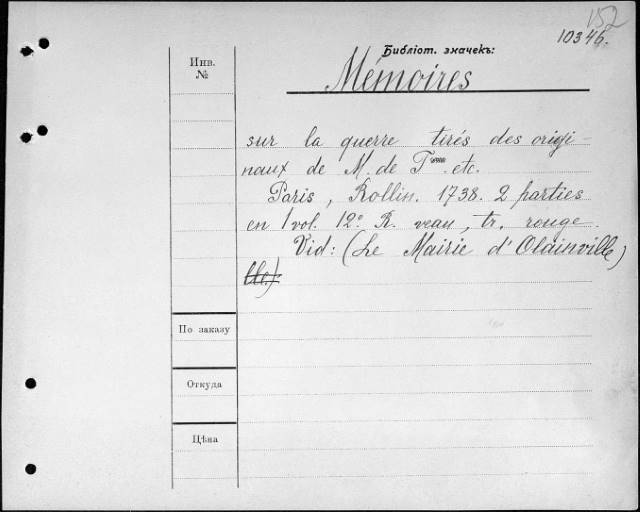 152
10346.
Библіот. значекъ:
Инв.
№
Mémoires
sur la guerre tirés des origi-
naux de M. de T*** etc.
Paris, Rollin. 1738. 2 parties
en 1 vol. 12º. R. veau, tr. rouge
Vid: (Le Mairie d'Olainville)
lle.):
По заказу
Откуда
Цѣна